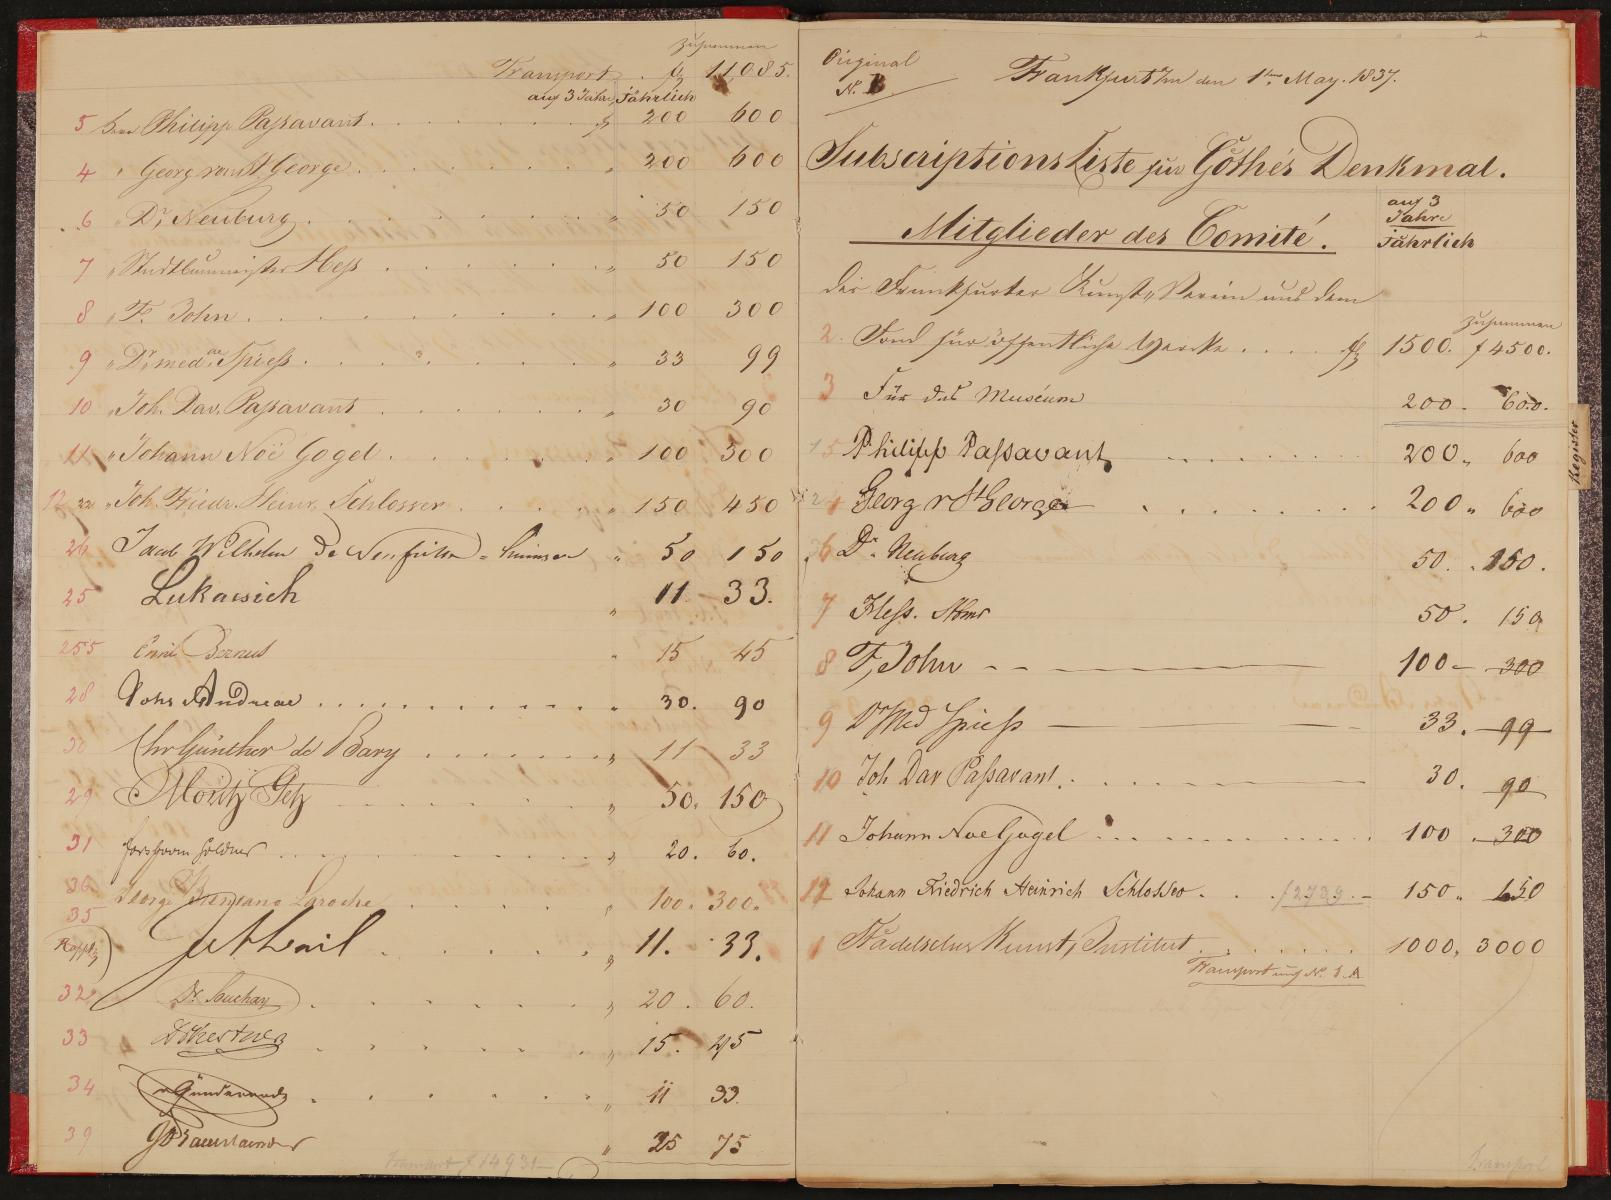 zusammen
Transport . f 11,085.
auf 3 Jahre jährlich
5 Herr Philipp Passavant . . . f 200 600
4 " Georg von St George . . . " 200 600
6 " Dr Neuburg . . . " 50 150
7 " Stadtbaumeister Hess . . . " 50 150
8 " F. John . . . " 100 300
9 " Dr med. Spiess . . . " 33 99
10 " Joh. Dav. Passavant . . . " 30 90
11 " Johann Noë Gogel . . . " 100 300
12 " Joh. Friedr. Heinr. Schlosser . . . " 150 450
26 Jacob Wilhelm de Neufville " 50 150
25 " 11 33.
255 Bernus " 15 45
28 Andreae . . . " 30. 90
30 Chr Günther de Bary . . . " 11 33
29 Moritz Getz . . . " 50. 150
31 . . . " 20. 60.
36 George Brentano Laroche . . . " 100. 300.
35 . . . " 11. 33.
32 Dr. Souchay . . . " 20. 60.
33 Kestner . . . " 15. 45
34 v Günderrode . . . " 11 33.
39 " 25 75
Transport f 14931
Original
N. B
Frankfurt a/m den 1ten May. 1837.
Subscriptions Liste für Göthe's Denkmal.
Mitglieder des Comité.
auf 3
Jahre
jährlich
Der Frankfurter Kunst-Verein aus dem
zusammen
2. Fond für öffentliche Werke . . . f 1500. f 4500.
3 Für das Museum 200. 600.
5 Philipp Passavant . . . 200 " 600
4 Georg v St George . . . 200 " 600
6 Dr. Neuburg 50. 150.
7 Hess. 50. 150
8 F. John 100 300
9 Dr Med Spiess 33. 99
10 Joh Dav Passavant . . . 30. 90
11 Johann Noe Gogel . . . 100 300
12 Johann Friedrich Heinrich Schlosser . . . 150 " 450
1 Städelsches Kunst-Institut . . . 1000. 3000
Transport auf N. 1. A
Transport
Register